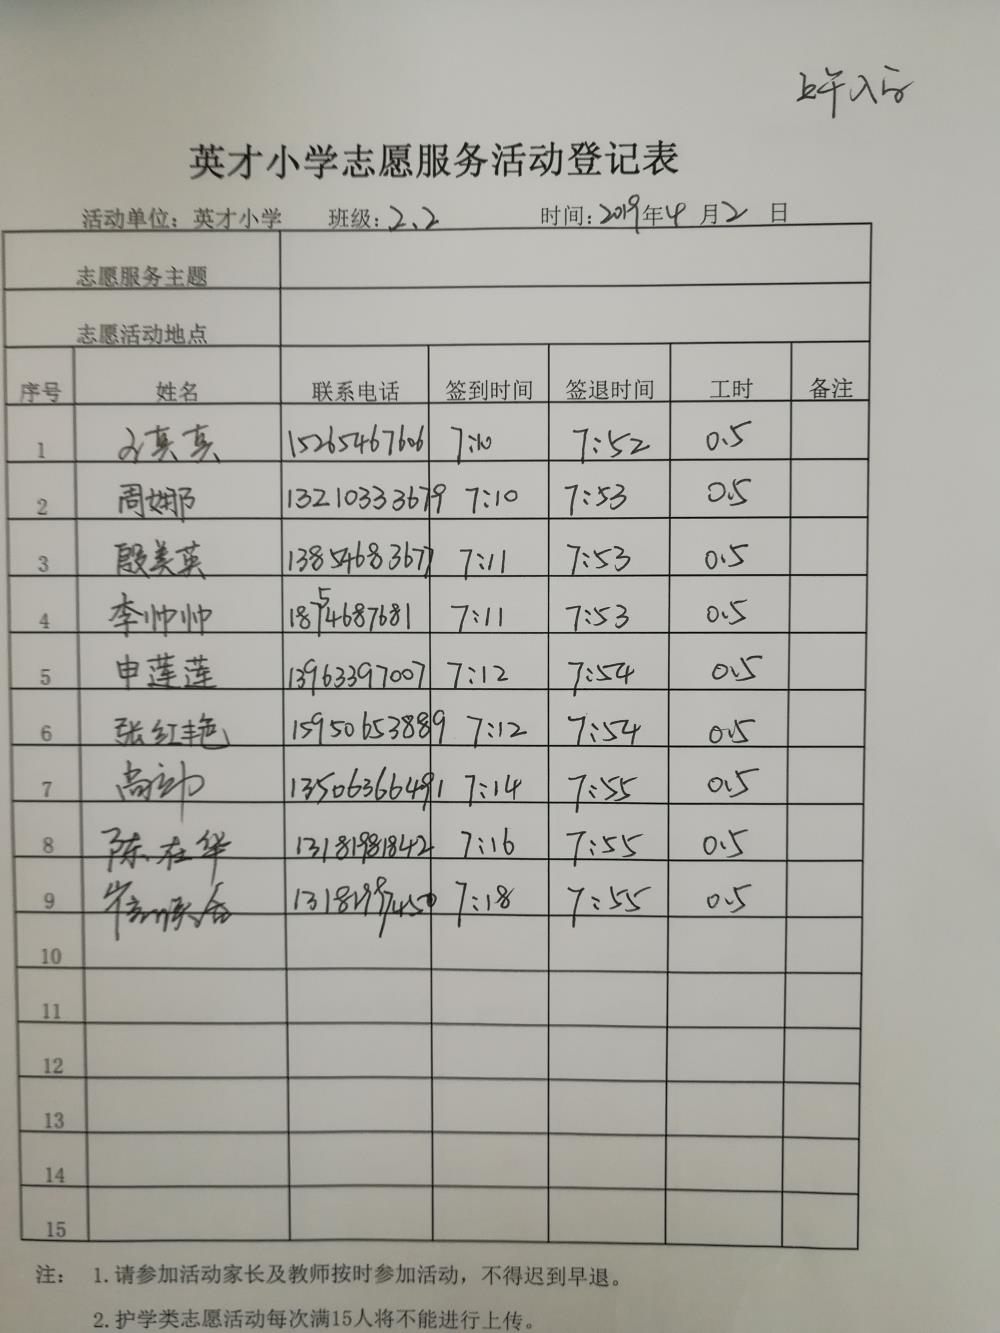 上午入校
英才小学志愿服务活动登记表
活动单位：英才小学 班级：2.2 时间：2019年4月2日
志愿服务主题
志愿活动地点
序号 姓名 联系电话 签到时间 签退时间 工时 备注
1 真真 15265467606 7:10 7:52 0.5
2 周娜 13210333679 7:10 7:53 0.5
3 殷美英 13854683677 7:11 7:53 0.5
4 李帅帅 18754687681 7:11 7:53 0.5
5 申莲莲 13963397007 7:12 7:54 0.5
6 张红艳 15950653889 7:12 7:54 0.5
7 尚 13506366491 7:14 7:55 0.5
8 陈在华 13181981842 7:16 7:55 0.5
9 7:18 7:55 0.5
10
11
12
13
14
15
注： 1.请参加活动家长及教师按时参加活动，不得迟到早退。
2.护学类志愿活动每次满15人将不能进行上传。